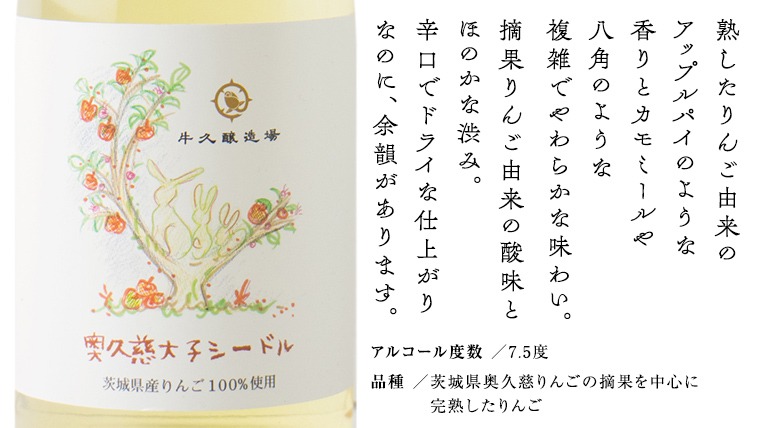 牛久醸造場
奥久慈大子シードル
茨城県産りんご100%使用
熟したりんご由来の
アップルパイのような
香りとカモミールや
八角のような
複雑でやわらかな味わい。
摘果りんご由来の酸味と
ほのかな渋み。
辛口でドライな仕上がり
なのに、余韻があります。
アルコール度数 ／7.5度
品種 ／茨城県奥久慈りんごの摘果を中心に
完熟したりんご